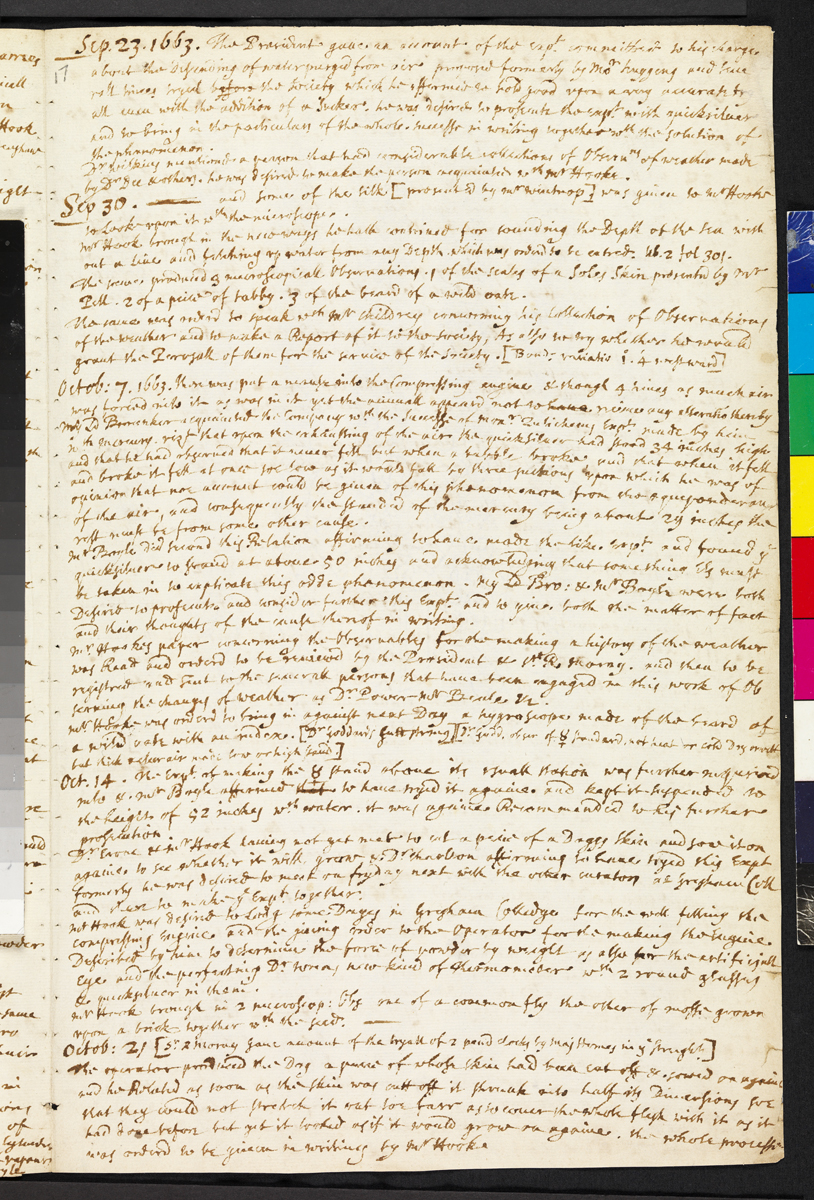 Sep. 23. 1663. The President gave an account of the Expt. committed to his charge
17
about the descending of water purged from aire proposed formerly by Monr Huygens and
times tryed before the Society which he affirmed to hold good upon a very accurate
with the addition of a Sucker. he was desired to prosecute the Expt. with quicksilver
and to bring in the particulars of the whole successe in writing together wth the solution of
the phenomenon.
Dr Wilkins mentiond a person that had considerable collections of Observns of weather made
by Dr Dee & others. he was desired to make the person acquainted wth Mr Hooke.
Sep 30. and some of the silk [presented by Mr Wintrop] was given to Mr Hooke
to Looke upon it wth the microscope.
Mr Hook brough in the new ways he hath contrived for sounding the Depth of the Sea with
out a Line and fetching up water from any Depth. which was orderd to be entred. lib. 2 fol 301.
The same produced 3 microscopicall Observations. 1 of the scales of a Soles Skin presented by Mr
Pell. 2 of a peice of tabby. 3 of the beard of a wild oate.
The same was orderd to speak wth Mr Childrey concerning his Collection of Observations
of the weather and to make a Report of it to the Society, As also to try whether he would
grant the Perusall of them for the service of the Society. [Bond: variatio 1. 4 westward]
Octob: 7. 1663. there was put a mouse into the Compressing engine & though 4 times as much air
was forced into it as was in it yet the animall appeard not to have receive any alteration thereby
My Ld Brouncker acquainted the Company wth the Successe of Monr Zulichems Expt. made by him
wth mercury. vizt that upon the exhausting of the air the quicksilver had stood 34 inches high
and that he had observed that it never fell but when a bubble broke and that when it fell
and broke it fell at once soe low as it would fall by three suctions upon which he was of
opinion that noe account could be given of this phenomenon from the aequiponderance
of the air, and consequently the standard of the mercury being about 29 inches the
rest must be from some other cause.
Mr Boyle did second this Relation affirming to have made the like Expt. and found ye
quicksilver to stand at above 50 inches and acknowledging that something Els must
be taken in to explicate this odde phenomenon. My Ld Bro: & Mr Boyle were both
Desired to prosecute and consider further this Expt. and to give both the matter of fact
and their thoughts of the cause thereof in writing.
Mr Hookes paper concerning the Observables for the making a history of the weather
was Read and orderd to be reviewed by the President & Sr R. Moray. and then to be
registred and sent to the severall persons that have been engaged in this work of Ob
serving the changes of weather as Dr Power Mr Beale &c.
Mr Hooke was orderd to bring in against next Day a hygroscope made of the beard of
a wild oate with an index. [Dr Goddards gutt string] [Dr Godd. obser of ☿ standard, not heat or cold Dry or wett
but thick or clear air made low or high stand]
Oct. 14. The Expt. of making the ☿ stand above its usuall station was further inquired
into & Mr Boyle affirmed to have tryed it againe and kept it suspended to
the height of 52 inches wth water. it was againe Recommended to his further
prosecution.
Dr Crone & Mr Hook having not yet met to cut a peice of a Doggs Skin and sow it on
againe to see whether it will grow & Dr Charlton affirming to have tryed this Expt
formerly he was desired to meet on fryday next with the other curators at Gresham Coll
and to make ye Expt. together.
Mr Hook was desired to Lodg some Dayes in Gresham Colledge for the well filling the
compressing Engine. and the giving order to the Operator for the making the Engine
Described by him to determine the force of powder by weight as also for the artificiall
Eye and the perfecting Dr Wrens new kind of thermometer wth 2 round glasses
& quicksilver in them.
Mr Hook brough in 2 microscop: Obs one of a common fly the other of mosse grown
upon a brick together wth the seed.
Octob: 21 [Sr R Moray gave account of the tryall of 2 pend clocks by Maj Homes in ye streights]
The operator produced the Dog a peice of whose skin had been cut off & sowed on again
and he Related as soon as the skin was cutt off it shrank into half its Dimensions soe
that they could not stretch it out soe farr as to cover the whole flesh with it as it
had done before but yet it looked as if it would grow on againe. the whole processe
was orderd to be given in writing by Mr Hooke